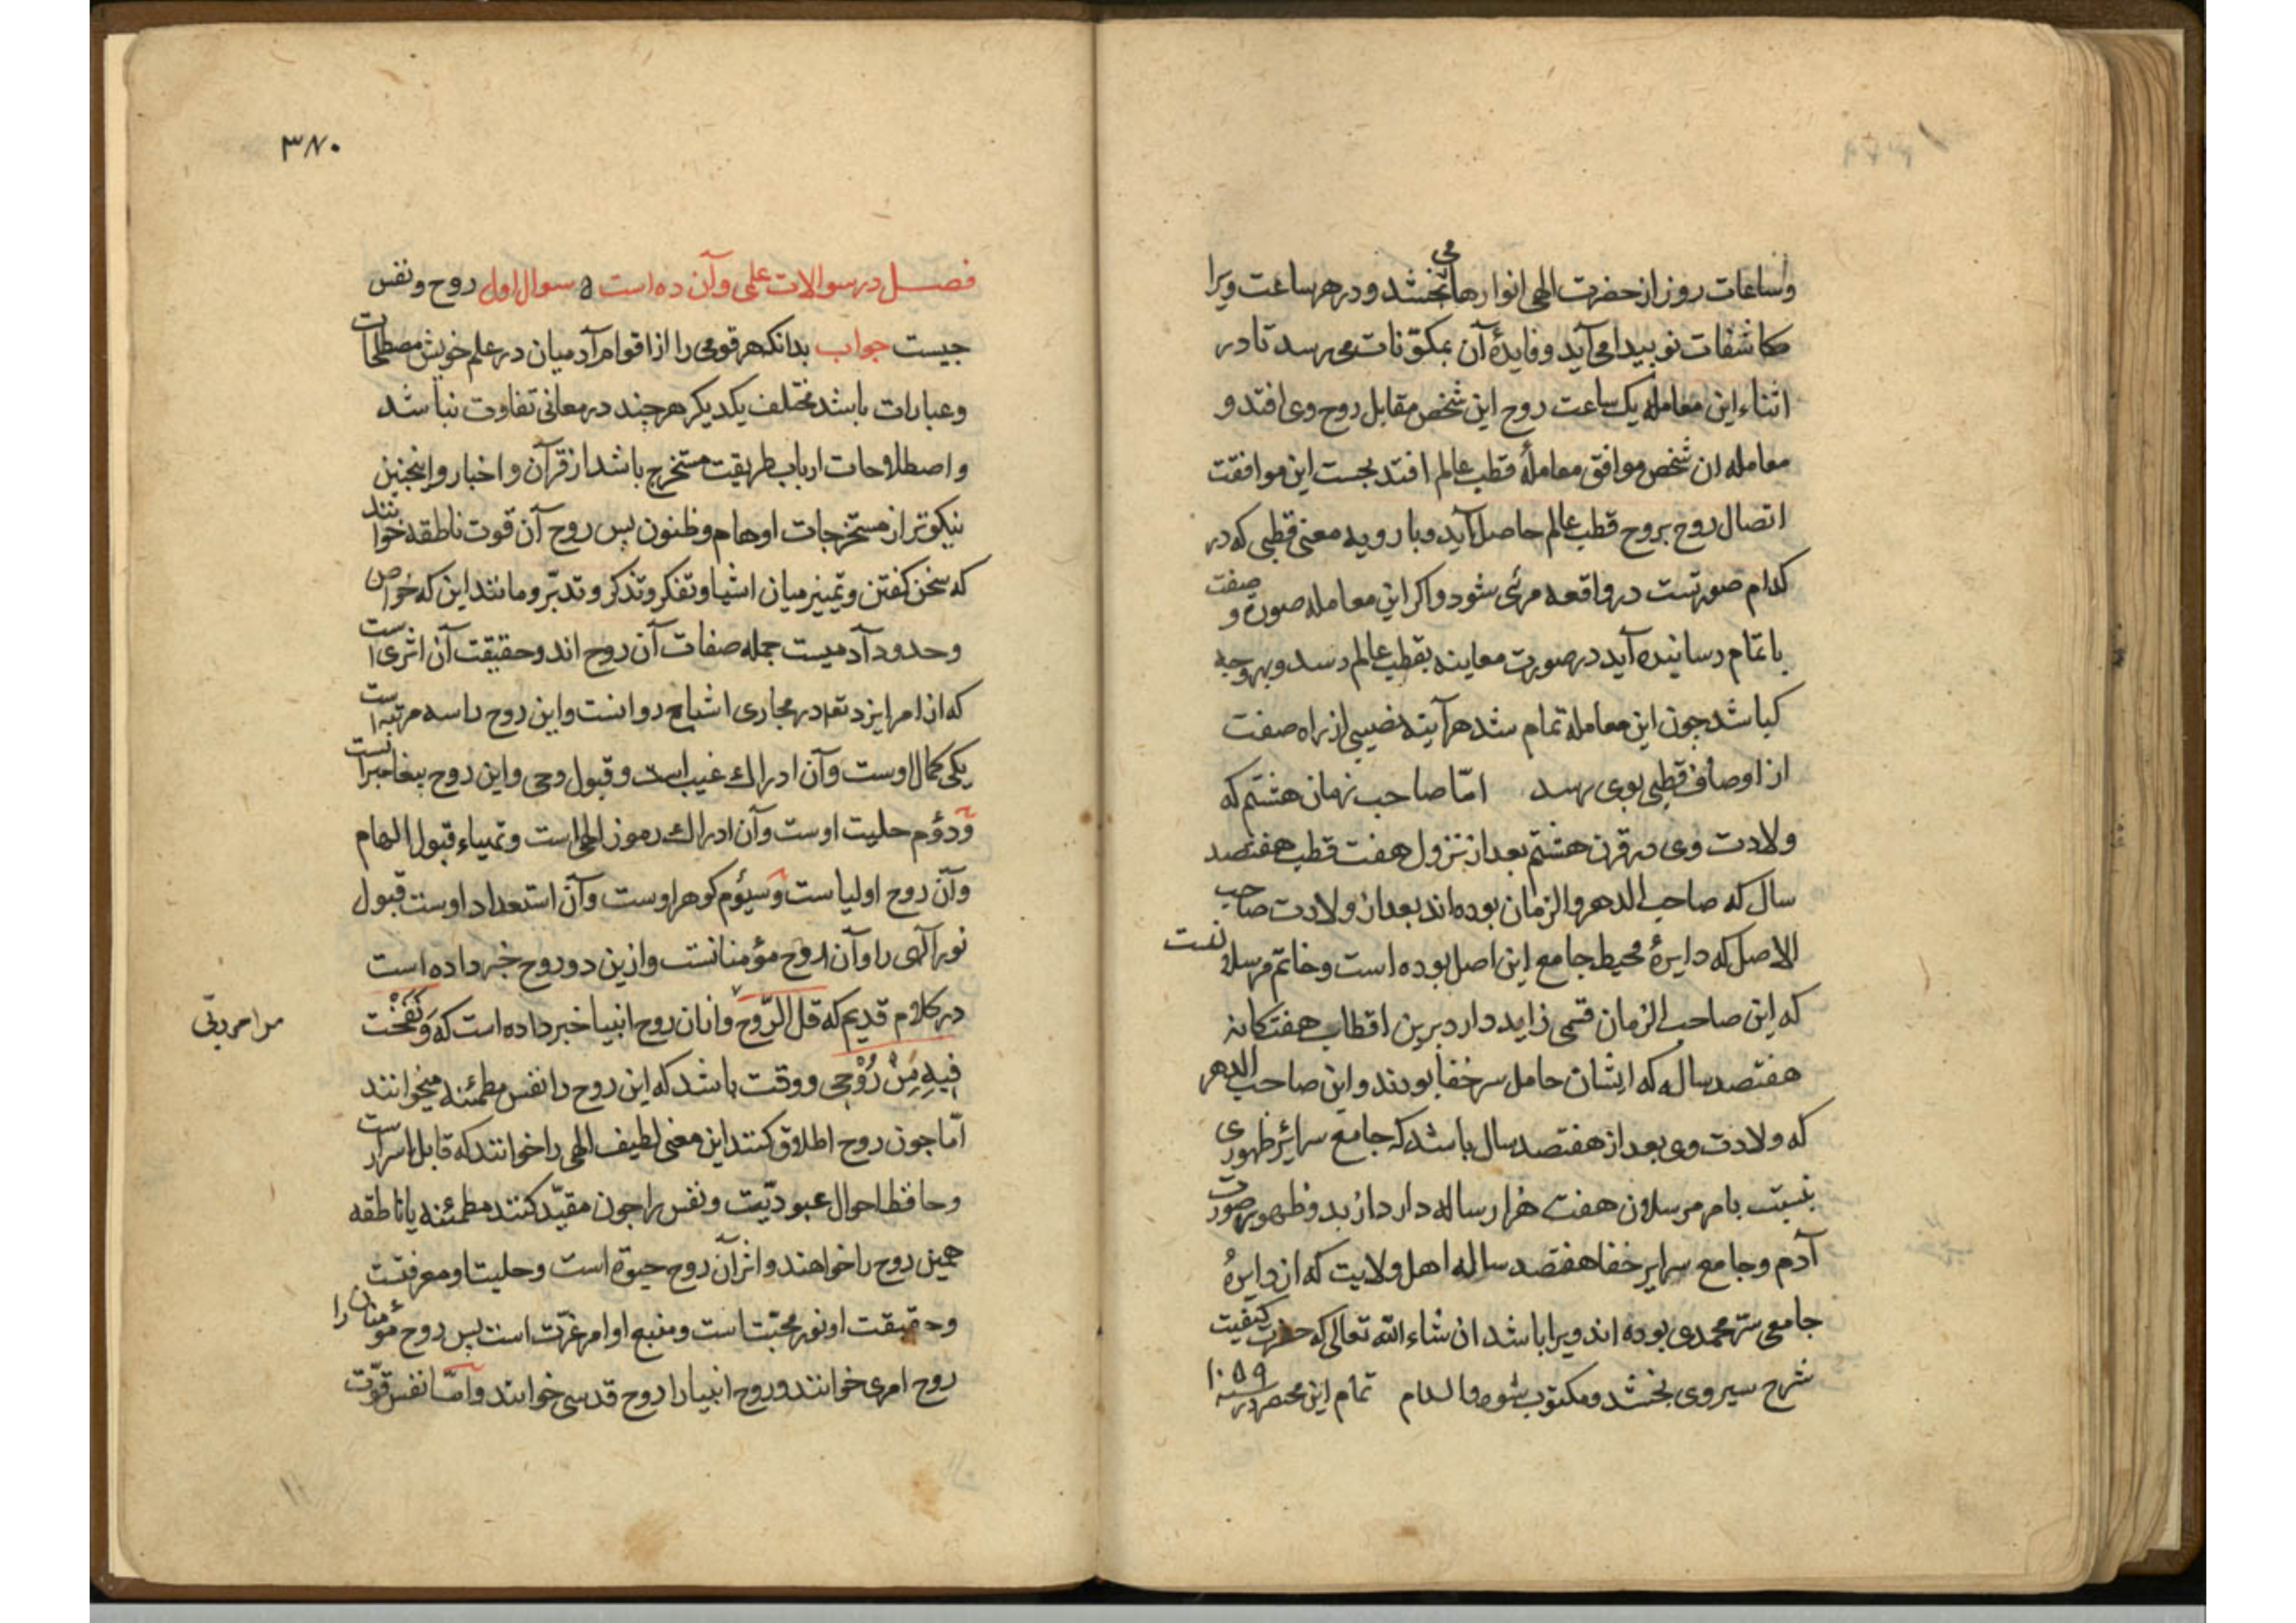 وساعات روز از حضرت الهی انوارها می بخشد و در هر ساعت ویرا
مکاشفات نو پیدا می آید و فایدهٔ آن بمکوّنات می رسد تا در
اثناء این معامله یک ساعت روح این شخص مقابل روح وی افتد و
معامله ان شخص موافق معاملهٔ قطب عالم افتد بجست این موافقت
اتصال روح بروح قطب عالم حاصل آید و بار وبه معنی قطبی که در
کدام صورتست در واقعه مرئی شود و اکر این معامله صورة و صفت
باتمام رسانیده آید در صورت معاینه بقطب عالم رسد و بهر وجه
کباشد جون این معامله تمام شد هرآینه نصیبی از راه صفت
از اوصاف قطبی بوی رسد امّا صاحب زمان هشتم که
ولادت وی در قرن هشتم بعد از نزول هفت قطب هفتصد
سال که صاحب الدهر والزمان بوده اند بعد از ولادت صاحب
الاصل که دایرهٔ محیط جامع این اصل بوده است و خاتم مرسلانست
که این صاحب الزمان قسمی زاید دارد برین اقطاب هفتکانه
هفتصد ساله که ایشان حامل سر خفا بودند و این صاحب الدهر
که ولادت وی بعد از هفتصد سال باشد که جامع سرائر ظهوری
نسبت بامر مرسلان هفت هزار ساله دارد از بدو ظهور صورت
آدم و جامع سرایر خفا هفتصد ساله اهل ولایت که از دایرهٔ
جامعی سرّ محمدی بوده اند ویرا باشد ان شاء الله تعالی که حضرت کیفیت
شرح سیر وی بخشد و مکتوب شود والسلام تمام این مختصر در سنه ۱۰۵۹
۳۸۰
فصل در سوالات علمی وآن ده است ه سوال اول روح ونفس
جیست جواب بدانکه هر قومی را از اقوام آدمیان در علم خویش مصطلحات
وعبارات باشد مختلف یکدیکر هرچند در معانی تفاوت نباشد
واصطلاحات ارباب طریقت مستخرج باشد از قرآن و اخبار و اینجنین
نیکوتر از مستخرجات اوهام وظنون بس روح آن قوت ناطقه خوانند
که سخن کفتن و تمییز میان اشیا و تفکر و تذکر و تدبّر و مانند این که خواص
وحدود آدمیست جمله صفات آن روح اند و حقیقت آن اثری است
که از امر ایزد تعا در مجاری اشباح روانست و این روح را سه مرتبه است
یکی کمال اوست وآن ادراک غیب است و قبول وحی و این روح بیغامبرانست
ودؤم حلیت اوست وآن ادراک رموز الهی است و تمیاء قبول الهام
وآن روح اولیاست وسیؤم کوهر اوست وآن استعداد اوست قبول
نور آلهی را وآن روح مؤمنانست و ازین دو روح خبر داده است
در کلام قدیم که قل الرّوح وازان روح انبیا خبر داده است که وَنَفَخْتُ
من امر ربّی
فیهِ مِنْ رُوْحِی و وقت باشد که این روح را نفس مطمئنه میخوانند
امّا جون روح اطلاق کنند این معنی لطیف الهی را خوانند که قابل اسرارست
وحافظ احوال عبودیّت ونفس را جون مقیّد کنند مطمئنه یا ناطقه
همین روح را خواهند و اثر آن روح حیوة است و حلیت او معرفتست
وحقیقت او نور محبّت است و منبع او امر عزّت است بس روح مؤمنان را
روح امری خوانند و روح انبیا را روح قدسی خوانند وامّا نفس قوّت